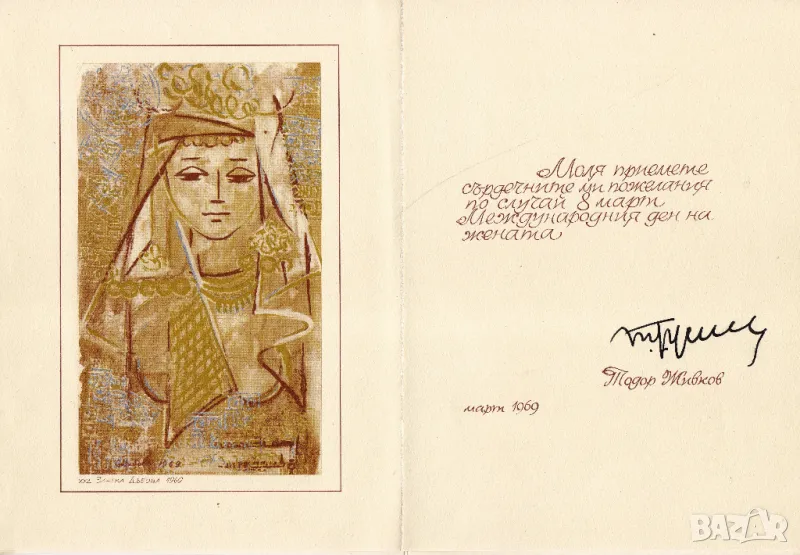 худ. Златка Дъбова 1969
Моля приемете
сърдечните ми пожелания
по случай 8 март
Международния ден на
жената
Тодор Живков
март 1969
BAZAR